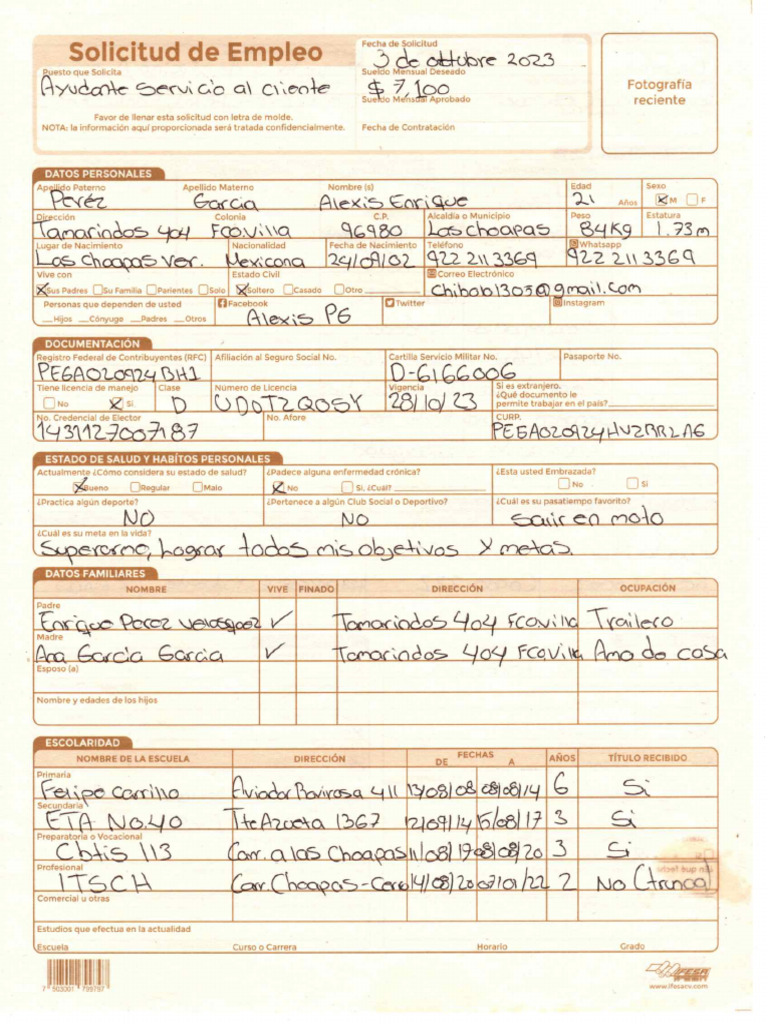 Solicitud de Empleo
Fecha de Solicitud
3 de octubre 2023
Puesto que Solicita
Ayudante Servicio al cliente
Sueldo Mensual Deseado
$ 7,100
Sueldo Mensual Aprobado
Favor de llenar esta solicitud con letra de molde.
NOTA: la información aquí proporcionada será tratada confidencialmente.
Fecha de Contratación
Fotografía
reciente
DATOS PERSONALES
Apellido Paterno Apellido Materno Nombre (s) Edad Sexo
Peréz Garcia Alexis Enrique 21 Años M F
Dirección Colonia C.P. Alcaldía o Municipio Peso Estatura
Tamarindos 404 Fco.villa 96980 Las choapas 84Kg 1.73m
Lugar de Nacimiento Nacionalidad Fecha de Nacimiento Teléfono Whatsapp
Las Choapas Ver. Mexicana 24/09/02 922 211 3369 922 211 3369
Vive con Estado Civil Correo Electrónico
Sus Padres Su Familia Parientes Solo Soltero Casado Otro
chibob1303@gmail.com
Personas que dependen de usted Facebook Twitter Instagram
Hijos Cónyuge Padres Otros Alexis PG
DOCUMENTACIÓN
Registro Federal de Contribuyentes (RFC) Afiliación al Seguro Social No. Cartilla Servicio Militar No. Pasaporte No.
PEGA020924BH1 D-6166006
Tiene licencia de manejo Clase Número de Licencia Vigencia Si es extranjero.
¿Qué documento le
permite trabajar en el país?
No Si D UDOTZQ0SY 28/10/23
No. Credencial de Elector No. Afore CURP.
1431127007187 PEGA020924HVZRRLA6
ESTADO DE SALUD Y HABÍTOS PERSONALES
Actualmente ¿Cómo considera su estado de salud? ¿Padece alguna enfermedad crónica? ¿Esta usted Embrazada?
Bueno Regular Malo No Si, ¿Cuál? No Si
¿Practica algún deporte? ¿Pertenece a algún Club Social o Deportivo? ¿Cuál es su pasatiempo favorito?
NO NO Salir en moto
¿Cuál es su meta en la vida?
Superarme, Lograr todos mis objetivos y metas.
DATOS FAMILIARES
NOMBRE VIVE FINADO DIRECCIÓN OCUPACIÓN
Padre
Enrique Perez Velasquez ✓ Tamarindos 404 Fco.villa Trailero
Madre
Ana García Garcia ✓ Tamarindos 404 Fco.villa Ama de casa
Esposo (a)
Nombre y edades de los hijos
ESCOLARIDAD
NOMBRE DE LA ESCUELA DIRECCIÓN FECHAS AÑOS TÍTULO RECIBIDO
DE A
Primaria
Felipe Carrillo Aviador Rovirosa 411 13/08/08 08/08/14 6 Si
Secundaria
ETA No.40 Tte Azueta 1367 12/09/14 15/08/17 3 Si
Preparatoria o Vocacional
Cbtis 113 Carr. a las Choapas 11/08/17 08/08/20 3 Si
Profesional
ITSCH Carr. Choapas- 14/08/20 07/01/22 2 No (trunca)
Comercial u otras
Estudios que efectua en la actualidad
Escuela Curso o Carrera Horario Grado
7 503001 799797
IFESA
www.ifesacv.com